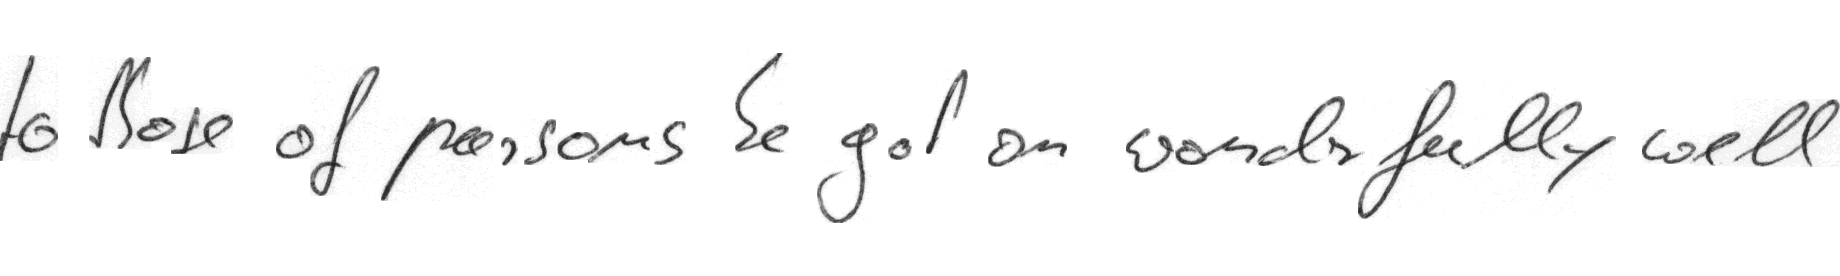 to those of persons he got on wonderfully well